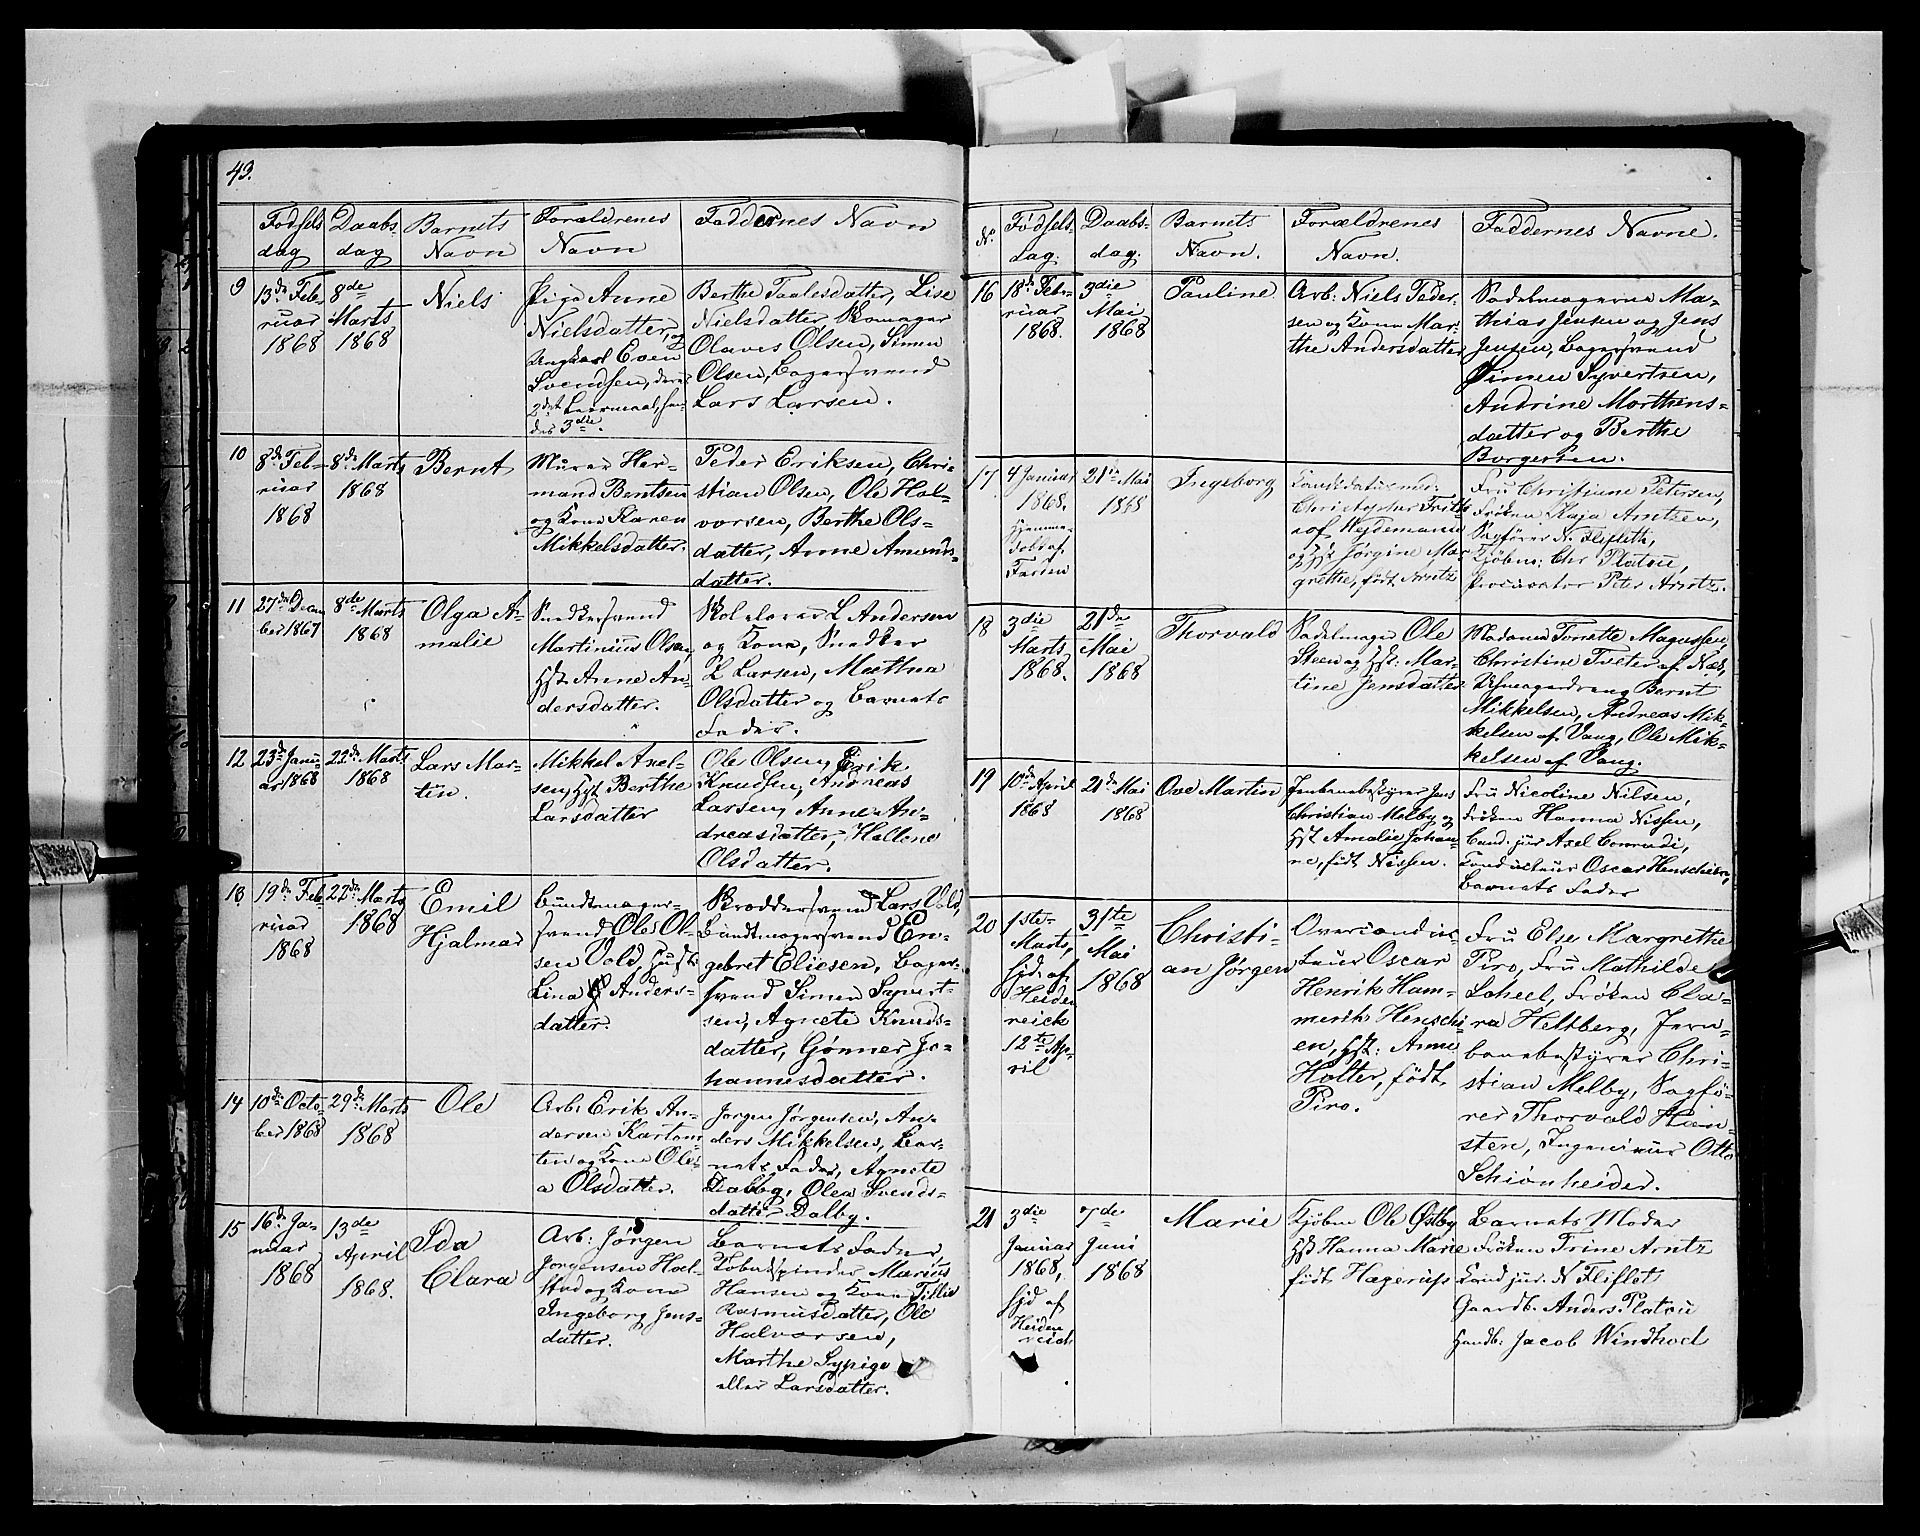 49.
Fødsels
dag
Daabs-
dag
Barnets
Navn
Forældrenes
Navn
Faddernes Navn
9
13de Feb-
ruar
1868
8de
Marts
1868
Niels
Pige Anne
Nielsdatter, og
Ungkarl Even
Svendsen, deres
2det Leiermaal, hen-
des 3die.
Berthe Paalesdatter, Lise
Nielsdatter Skomager
Olaves Olsen, Simen
Olsen, Bagersvend
Lars Larsen.
10
8de Feb-
ruar
1868
8de Marts
1868
Bernt
Murer Her-
mand Bentsen
og Kone Karen
Mikkelsdatter.
Peder Eriksen, Chri-
stian Olsen, Ole Hal-
vorsen, Berthe Ols-
datter, Anne Amunds-
datter.
11
27de Decem
ber 1867
8de Marts
1868
Olga A-
malie
Snedkersvend
Martinius Olsen,
Hst. Anne An-
dersdatter.
Skolelærer L Andersen
og Kone, Snedker
L Larsen, Mathea
Olsdatter og Barnets
Fader.
12
23de Janu-
ar 1868
22de Marts
1868
Lars Mar-
tin.
Mikkel Axel-
sen, Hst Berthe
Larsdatter
Ole Olsen, Erik
Knudsen, Andreas
Larsen, Anne An-
dreasdatter, Hellene
Olsdatter.
13
19de Feb-
ruar
1868
22de Marts
1868
Emil
Hjalmar
Bundtmager-
svend Ole Ol-
sen Vold Hust
Lina Anders-
datter.
Skreddersvend Lars Vold,
Bundtmagersvend En-
gebret Eliesen, Bager-
svend Simen Syvert-
sen, Agnete Knuds-
datter, Gønner Jo-
hannesdatter.
14
10de Octo-
ber 1868
29de Marts
1868
Ole
Arb: Erik An-
dersen
ten og Kone Ole-
a Olsdatter.
Jørgen Jørgensen, An-
ders Mikkelsen, Bar-
nets Fader, Agnete
Dalby, Olea Svends-
datter Dalby.
15
16de Ja-
nuar
1868
13de
April
1868.
Ida
Clara
Arb: Jørgen
Jørgensen Hal-
stad og Kone
Ingeborg Jens-
datter.
Barnets Fader,
Tobakspinder Marius
Hansen og Kone Tillie
Rasmusdatter, Ole
Halvorsen,
Marthe Sypige
eller Larsdatter.
No
Fødsels-
dag.
Daabs-
dag.
Barnets
Navn.
Forældrenes
Navn.
Faddernes Navne.
16
18de Feb-
ruar
1868.
3die
Mai
1868
Pauline
Arb: Niels Peder-
sen og Kone Mar-
the Andersdatter
Sadelmagerne Ma-
thias Jensen og Jens
Jensen, Bagersvend
Simen Syvertsen,
Andrine Morthens-
datter og Berthe
Borgersen.
17
4 Januar
1868.
Hjemme-
døbt af
Faderen
21de Mai
1868
Ingeborg
Candidatus med.
Christopher Frith-
iof Hejdemann
og Hst Jørgine Ma-
grethe, født Arntz
Fru Christine Petersen,
Frøken Kaja Arntzen,
Sagfører N. Fliflet,
Kjøbm: Chr Platou,
Procurator Peter Arntz.
18
3die
Marts
1868.
21de
Mai
1868
Thorvald
Sadelmager Ole
Steen og Hst: Mar-
tine Jensdatter
Madame Tonette Magnussen,
Christine Tveter af Næs,
Bernt
Mikkelsen, Andreas Mik-
kelsen af Vang, Ole Mik-
kelsen af Vang.
19
10de April
1868
21de Mai
1868
Ove Martin
Jernbanebestyrer Jens
Christian Melby og
Hst Amalie Johan-
ne, født Nissen.
Fru Nicoline Nilsen,
Frøken Hanna Nissen,
Cand. jur Axel Conradi,
Conducteur Oscar Henschien,
Barnets Fader
20
1ste
Marts,
hjd. af
Heiden
reich
12te Ap-
ril
31te
Mai
1868
Christi-
an Jørgen
Overconduc-
teur Oscar
Henrik Ham-
merik Henschi-
en, Hst: Anne
Holter, født
Piro.
Fru Else Margrethe
Piro, Fru Mathilde
Scheel, Frøken Cla-
ra Heltberg, Jern-
banebestyrer Chri-
stian Melby, Sagfø-
rer Thorvald Han-
sten, Ingenieur Otto
Schiønheider.
21
3die
Januar
1868,
hjd af
Heiden
reich
7de
Juni
1868
Marie
Kjøbm Ole Østby
Hst Hanna Marie
født Hagerup
Barnets Moder
Frøken Trine Arntz
Cand jur. N Fliflet
Gaardb. Anders Platou
Handb: Jacob Windhod